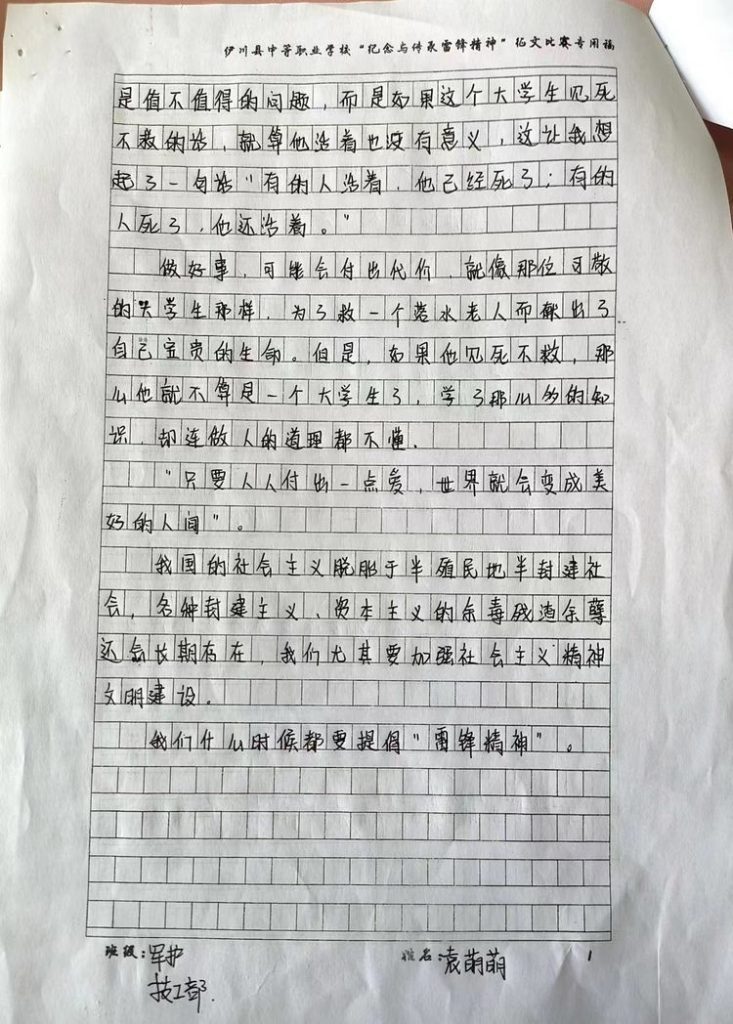 伊川县中等职业学校“纪念与传承雷锋精神”征文比赛专用稿
是值不值得的问题，而是如果这个大学生见死
不救的话，就算他活着也没有意义，这让我想
起了一句话“有的人活着，他已经死了；有的
人死了，他还活着。”
做好事，可能会付出代价，就像那位可敬
的大学生那样，为了救一个落水老人而献出了
自己宝贵的生命。但是，如果他见死不救，那
么他就不算是一个大学生了，学了那么多的知
识，却连做人的道理都不懂.
“只要人人付出一点爱，世界就会变成美
好的人间”。
我国的社会主义脱胎于半殖民地半封建社
会，各种封建主义、资本主义的余毒残渣余孽
还会长期存在，我们尤其要加强社会主义精神
文明建设.
我们什么时候都要提倡“雷锋精神”。
班级：军护 姓名：袁萌萌 1
技工部.